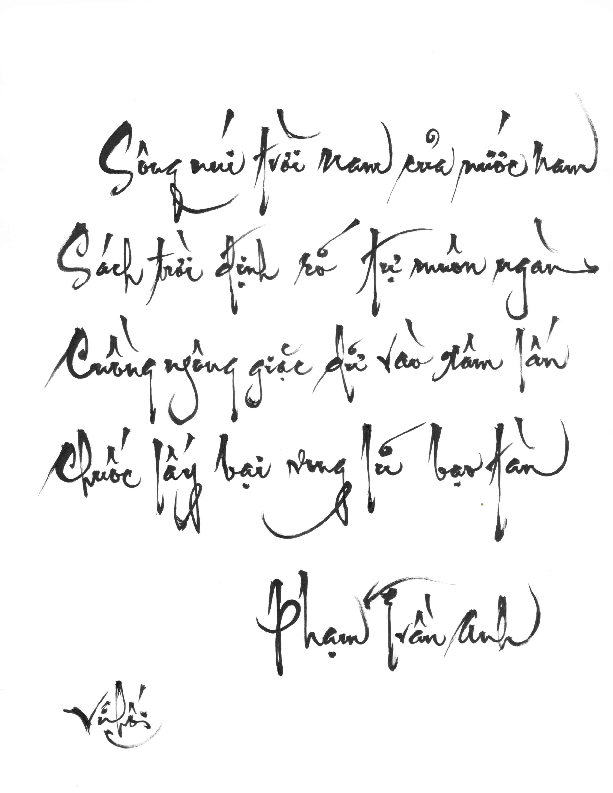 Sông núi trời nam của nước nam
Sách trời định rõ tự muôn ngàn
Cuồng ngông giặc dữ vào xâm lấn
Chuốc lấy bại vong lũ bạo tàn
Phạm Trần Anh